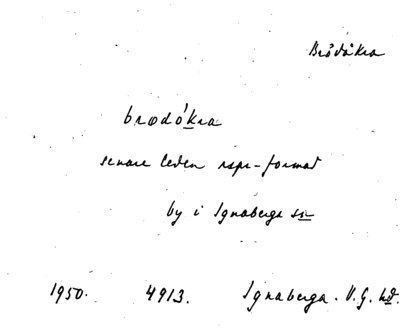 Brödåkra
brœdókra
senare leden rspr-format
by i Ignaberga sn
1950. 4913. Ignaberga. V. G. hd.